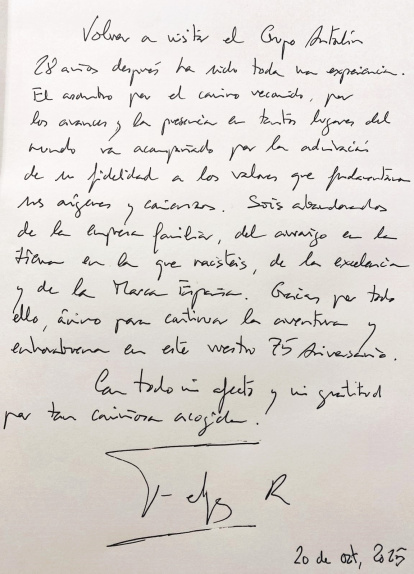 Volver a visitar el Grupo Antolín
28 años después ha sido toda una experiencia.
El asombro por el camino recorrido, por
los avances y la presencia en tantos lugares del
mundo va acompañado por la admiración
de su fidelidad a los valores que fundamentan
sus orígenes y comienzos. Sois abanderados
de la empresa familiar, del arraigo en la
tierra en la que nacisteis, de la excelencia
y de la Marca España. Gracias por todo
ello, ánimo para continuar la aventura y
enhorabuena en este vuestro 75 Aniversario.
Con todo mi afecto y mi gratitud
por tan cariñosa acogida.
Felipe R
20 de oct, 2025